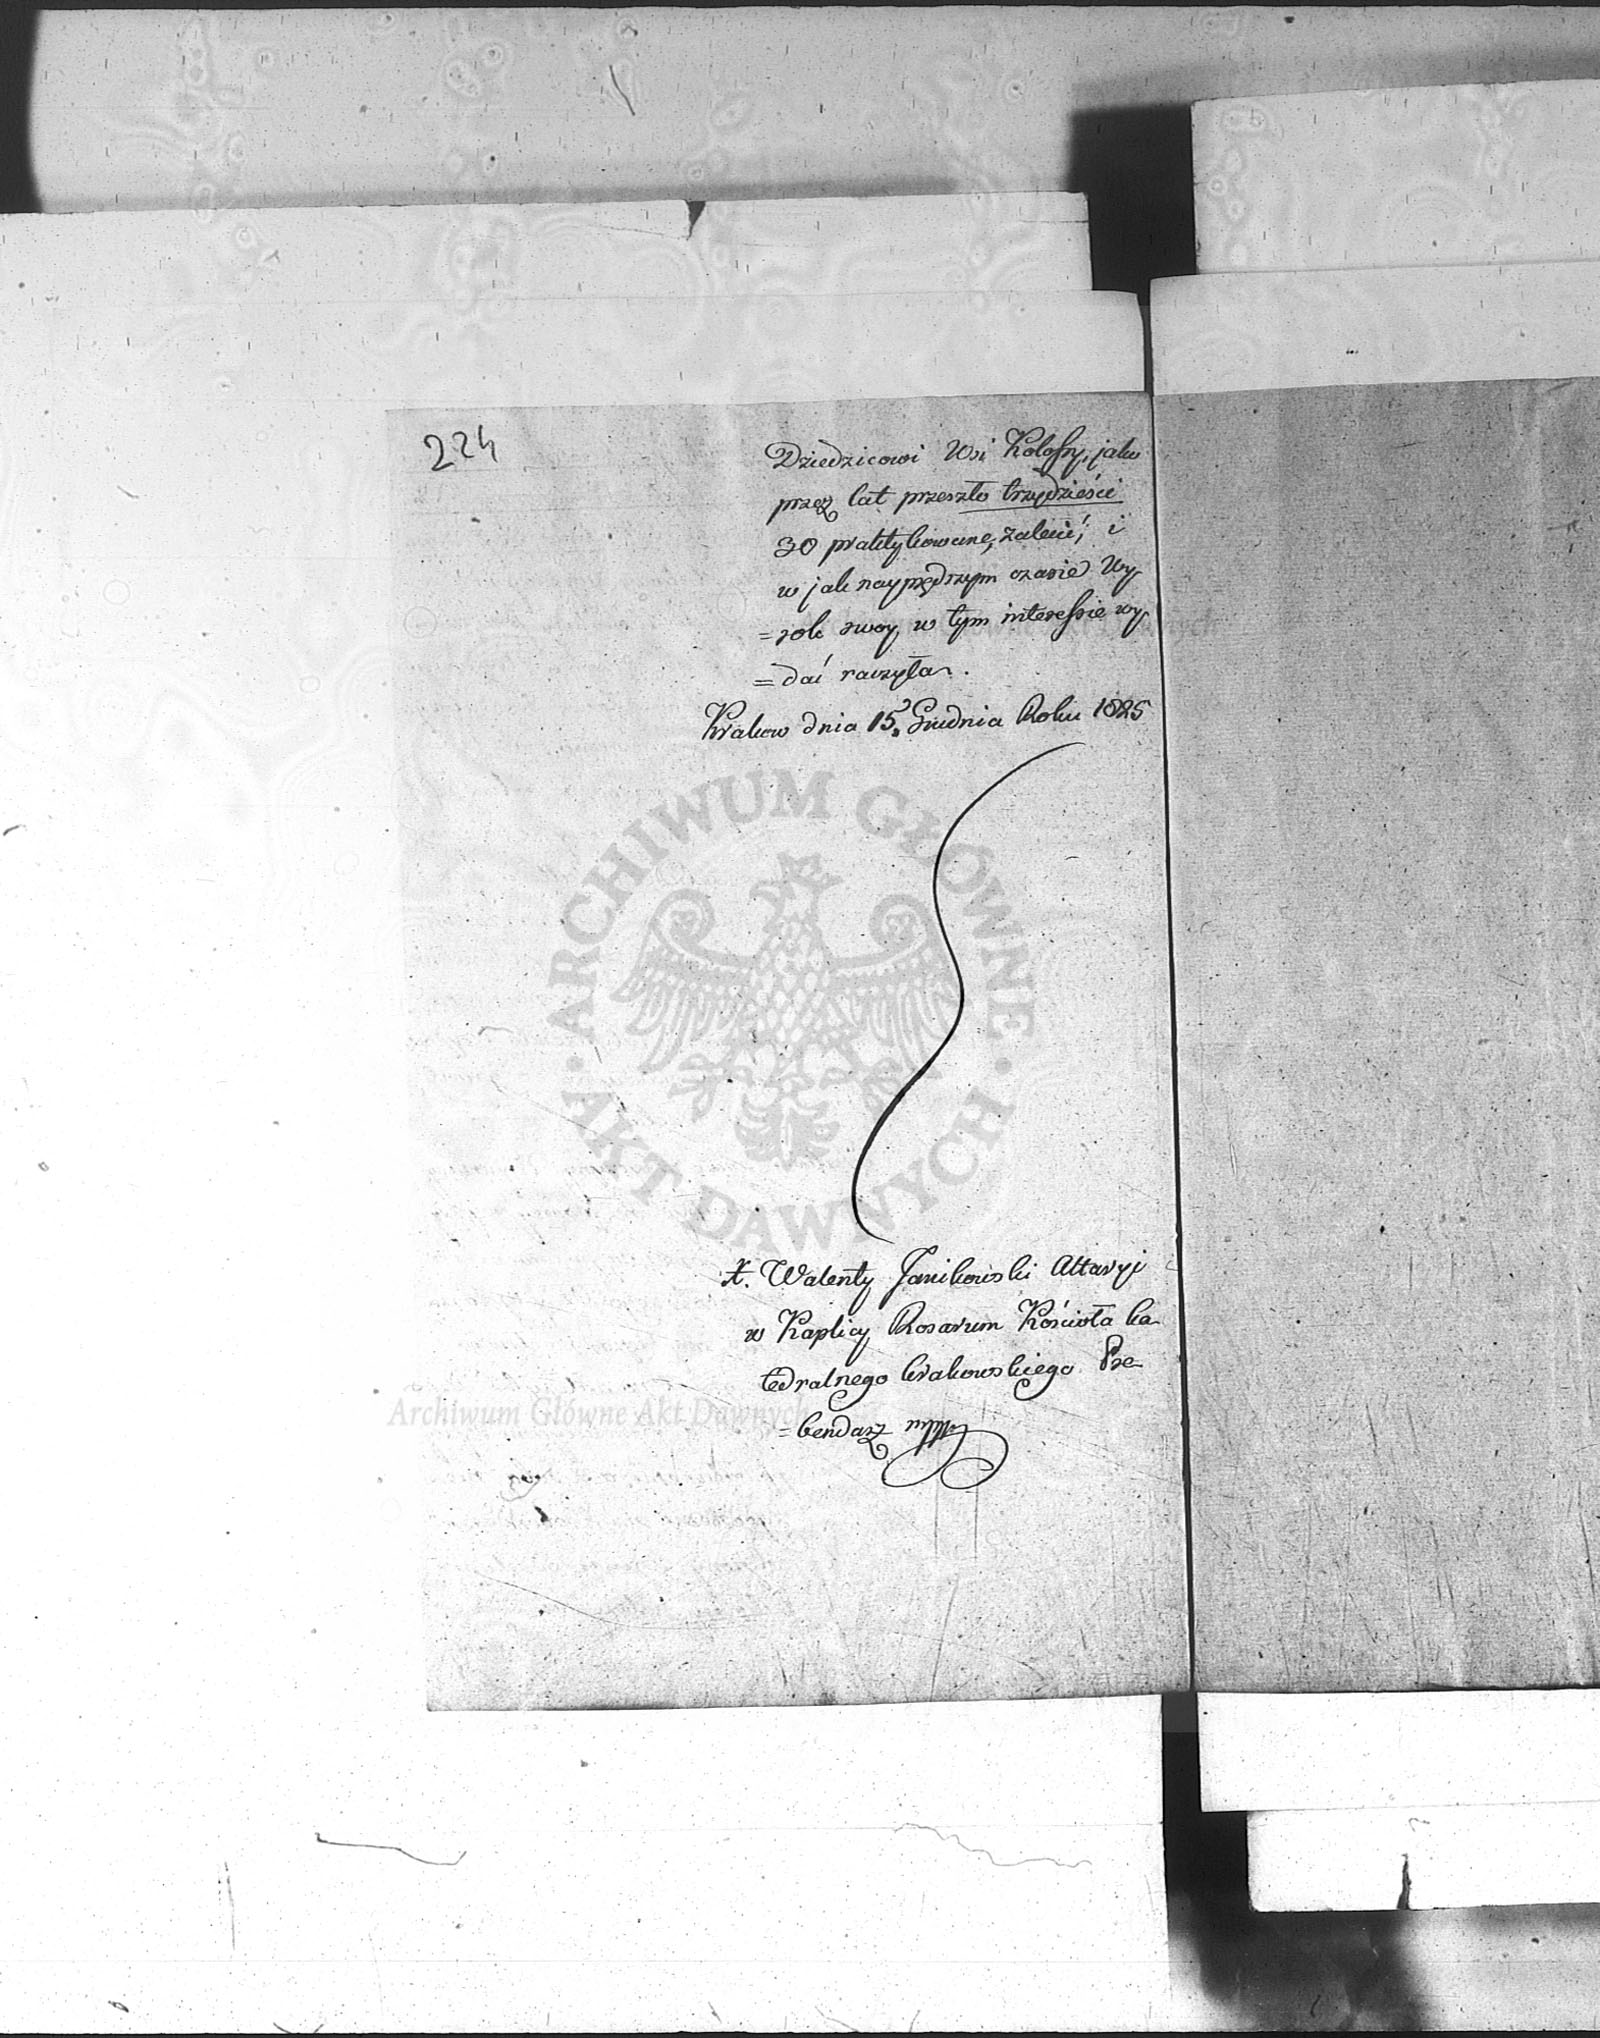 224
Dziedzicowi Wsi Kolosy, jako
przez lat przeszło trzydzieści
30 praktykowane, zalecić, i
w jak nayprędszym czasie Wy
=rok swoy w tym interessie wy
=dać raczyła.
Krakow dnia 15. Grudnia Roku 1825
X. Walenty Janikowski Altaryi
w Kaplicy Rosarum Kościoła ka
tedralnego krakowskiego Pre
=bendarz mppa
ARCHIWUM GŁÓWNE
AKT DAWNYCH
Archiwum Główne Akt Dawnych